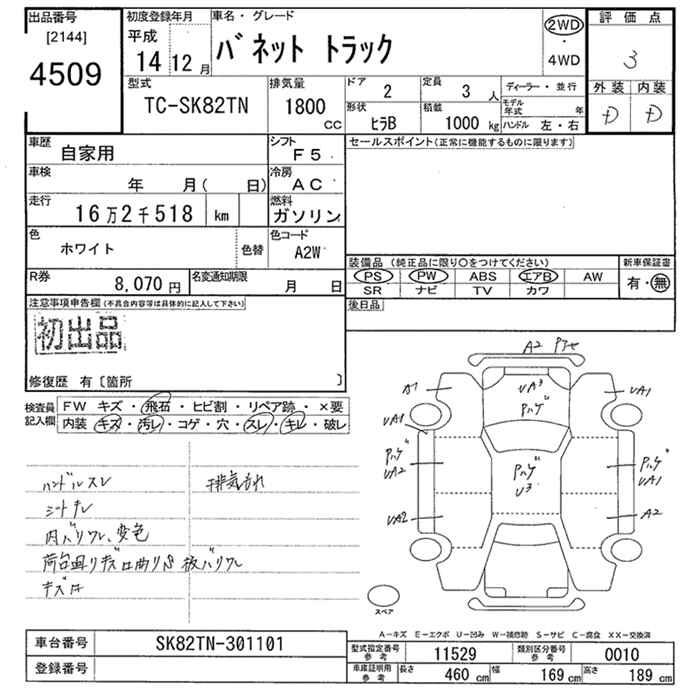 出品番号
[2144]
4509
初度登録年月
平成
14年12月
車名・グレード
バネット トラック
2WD
・
4WD
評価点
3
外装 内装
D D
型式
TC-SK82TN
排気量
1800
CC
ドア
2
定員
3人
形状
ヒラB
積載
1000kg
ディーラー・並行
モデル年式 年
ハンドル 左・右
車歴
自家用
シフト
F5
車検
年 月( 日)
冷房
AC
走行
16万2千518 km
燃料
ガソリン
色
ホワイト
色替
色コード
A2W
R券
8,070円
名変通知期限
月 日
セールスポイント(正常に機能するものに限ります)
装備品 (純正品に限り○をつけてください)
新車保証書
PS PW ABS エアB AW
SR ナビ TV カワ
有・無
後日品
注意事項申告欄(不具合内容等は具体的に記入して下さい)
初出品
修復歴 有〔箇所 〕
検査員記入欄
FW キズ・飛石・ヒビ割・リペア跡・×要
内装・キズ・汚レ・コゲ・穴・スレ・キレ・破レ
ハンドルスレ 排気もれ
シートキレ
内バリワレ、変色
荷台回りキズ凹曲りS 板バリワレ
キズ凹
A2
UA3
パハゲ
A1
UA1
UA1
パハゲ
UA2
パハゲ
U3
パハゲ
UA1
UA2
A2
スペア
A−キズ E−エクボ U−凹み W−補修跡 S−サビ C−腐食 XX−交換済
車台番号
SK82TN-301101
登録番号
型式指定番号
参考
11529
類別区分番号
参考
0010
車庫証明用
参考
長さ 460 cm 幅 169 cm 高さ 189 cm